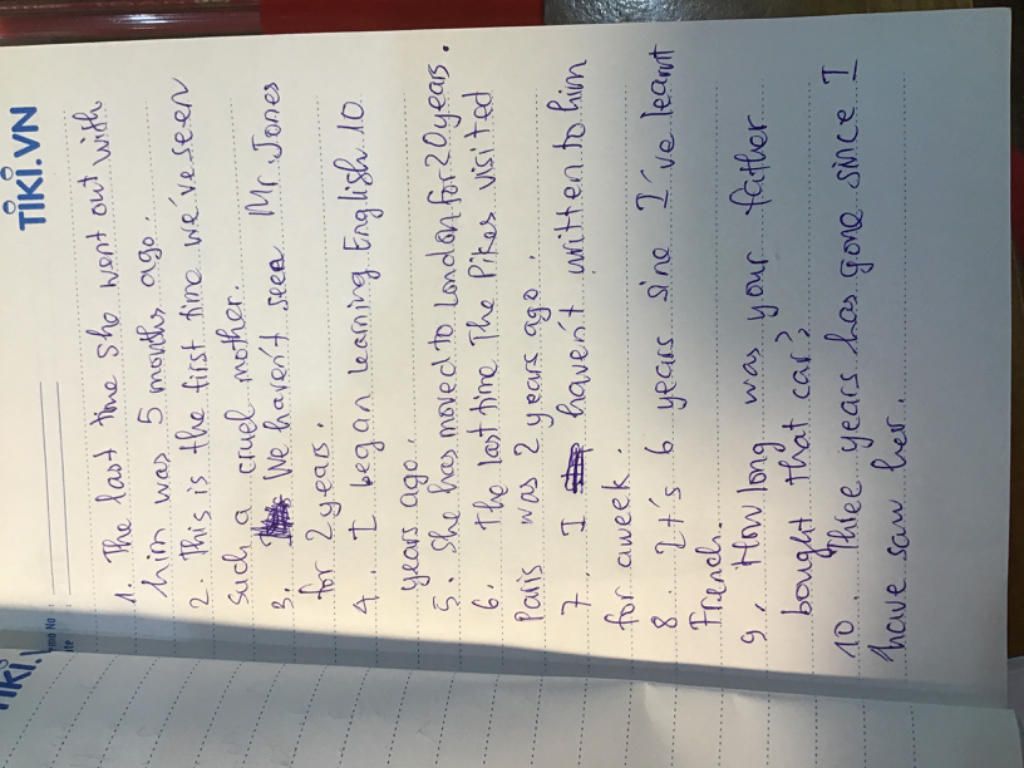 TIKI.VN
1. The last time she went out with
him was 5 months ago.
2. This is the first time we've seen
such a cruel mother.
3. We haven't seen Mr. Jones
for 2 years.
4. I began learning English 10
years ago.
5. She has moved to London for 20 years.
6. The last time The Pikes visited
Paris was 2 years ago.
7. I haven't written to him
for a week.
8. It's 6 years sine I've learnt
French.
9. How long was your father
bought that car?
10. Three years has gone since I
have saw her.